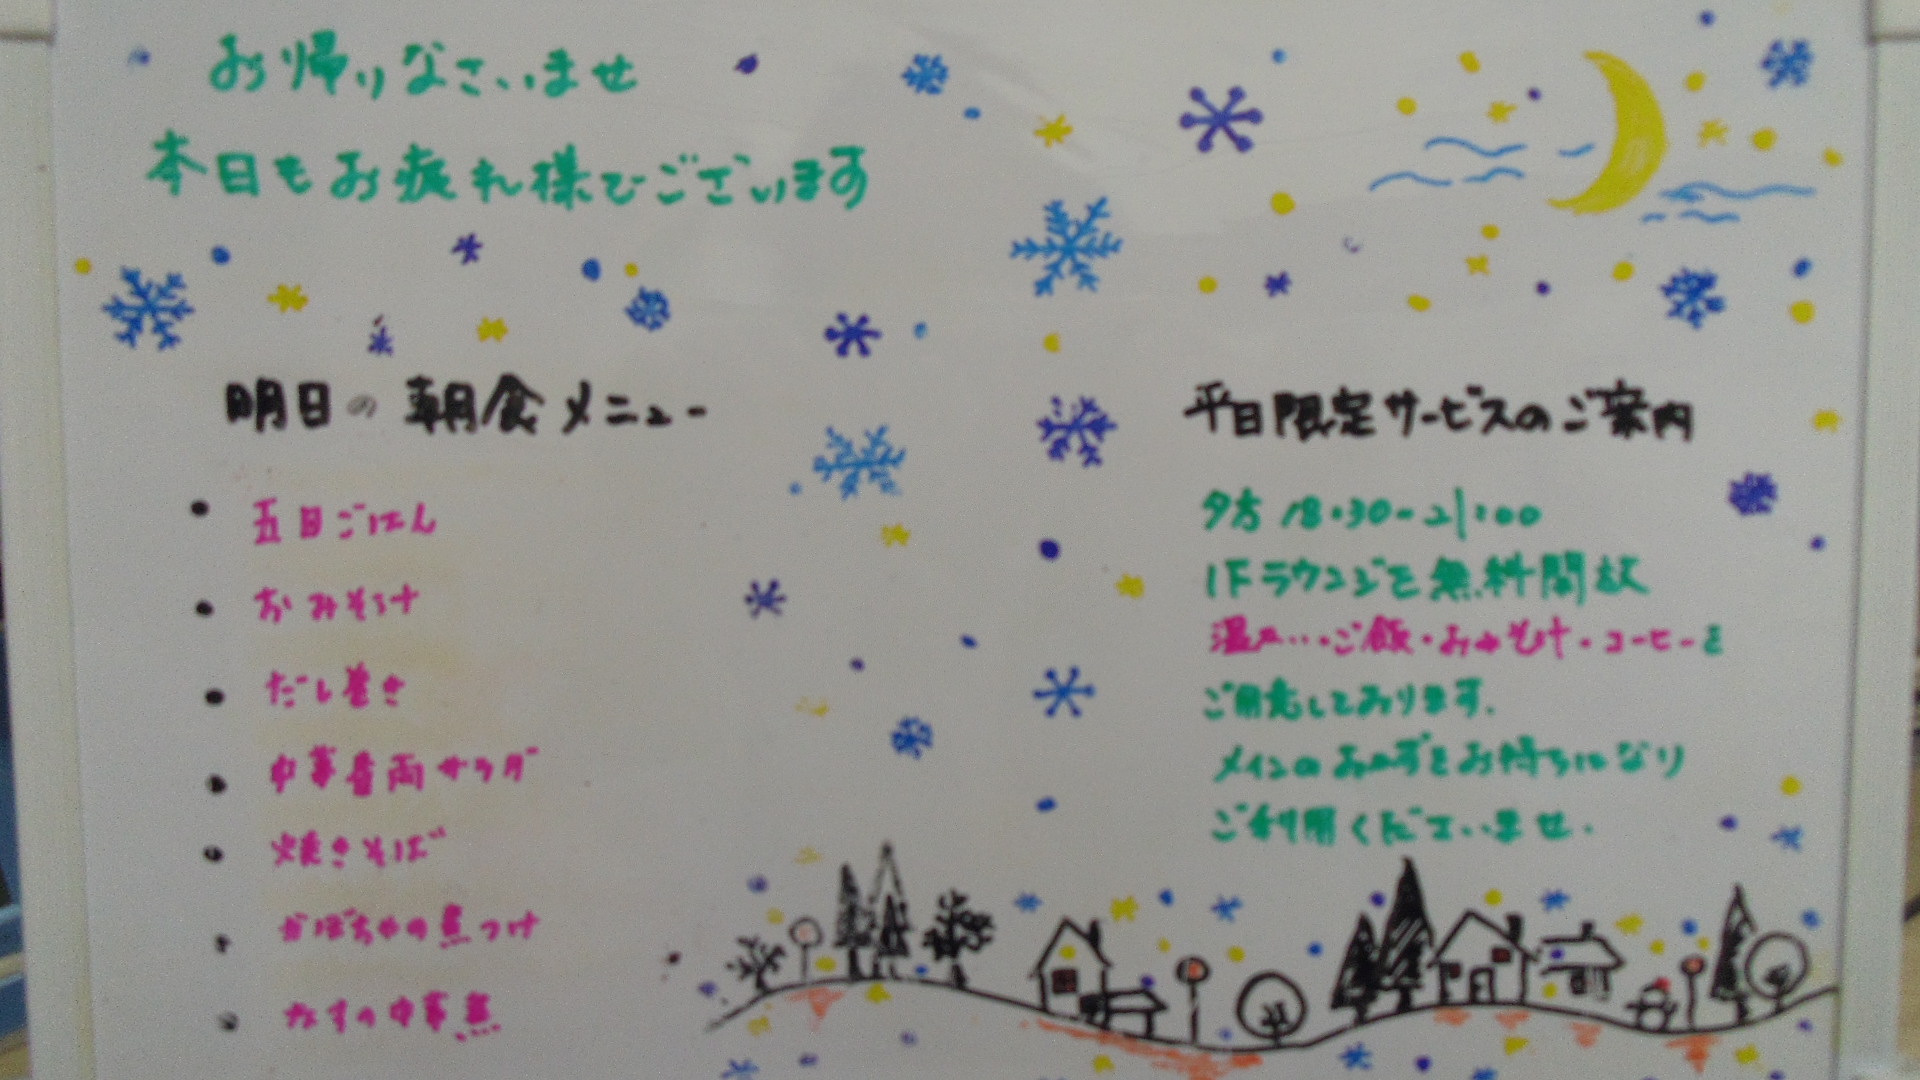 お帰りなさいませ
本日もお疲れ様でございます
明日の朝食メニュー
・五目ごはん
・おみそ汁
・だし巻き
・中華春雨サラダ
・焼きそば
・かぼちゃの煮つけ
・なすの中華煮
平日限定サービスのご案内
夕方 18:30-21:00
1Fラウンジを無料開放
ご飯・おみそ汁・コーヒーを
ご用意しております.
メインのおかずをお持ちになり
ご利用くださいませ.